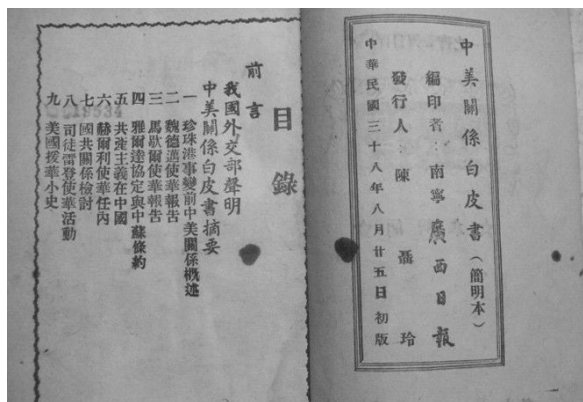 中美關係白皮書（簡明本）
編印者：南寧廣西日報
發行人：陳聶玲
中華民國三十八年八月廿五日初版
目錄
前言
我國外交部聲明
中美關係白皮書摘要
一 珍珠港事變前中美關係概述
二 魏德邁使華報告
三 馬歇爾使華報告
四 雅爾達協定與中蘇條約
五 共產主義在中國
六 赫爾利使華任內
七 國共關係檢討
八 司徒雷登使華活動
九 美國援華小史